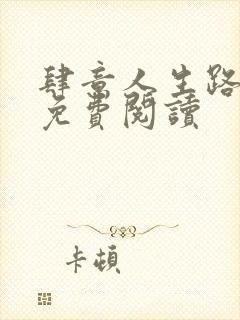 肆意人生路
免費閱讀
卡頓